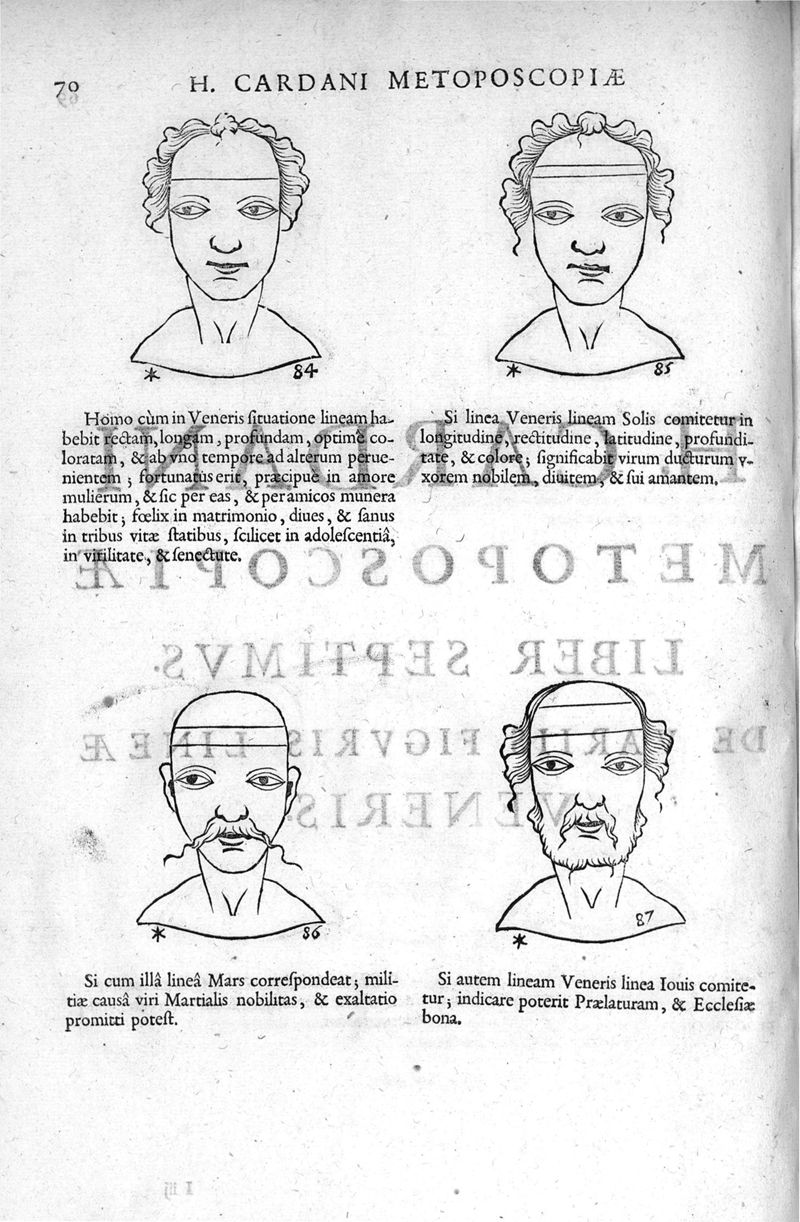 70
H. CARDANI METOPOSCOPIÆ
84
Homo cùm in Veneris ſituatione lineam ha-
bebit rectam, longam, profundam, optimè co-
loratam, & ab vno tempore ad alterum perue-
nientem ; fortunatus erit, præcipuè in amore
mulierum, & ſic per eas, & per amicos munera
habebit ; fœlix in matrimonio, diues, & ſanus
in tribus vitæ ſtatibus, ſcilicet in adoleſcentiâ,
in virilitate, & ſenectute.
85
Si linea Veneris lineam Solis comitetur in
longitudine, rectitudine, latitudine, profundi-
tate, & colore ; ſignificabit virum ducturum v-
xorem nobilem, diuitem, & ſui amantem.
86
Si cum illâ lineâ Mars correſpondeat ; mili-
tiæ causâ viri Martialis nobilitas, & exaltatio
promitti poteſt.
87
Si autem lineam Veneris linea Iouis comite-
tur ; indicare poterit Prælaturam, & Eccleſiæ
bona.
H. CARDANI
METOPOSCOPIÆ
LIBER SEPTIMVS.
DE VARIIS FIGVRIS LINEÆ
VENERIS.
I iij